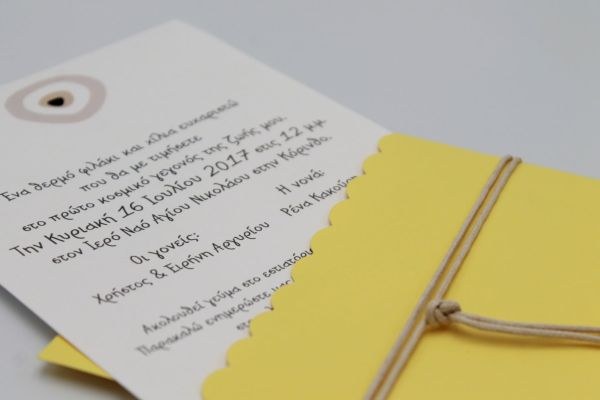 Ένα θερμό φιλάκι και χίλια ευχαριστώ
που θα με τιμήσετε
στο πρώτο κοσμικό γεγονός της ζωής μου.
Την Κυριακή 16 Ιουλίου 2017 στις 12 μ.μ.
στον Ιερό Ναό Αγίου Νικολάου στην Κόρινθο.
Οι γονείς: Η νονά:
Χρήστος & Ειρήνη Αργυρίου Ρένα
Ακολουθεί γεύμα στο
Παρακαλώ ενημερώστε